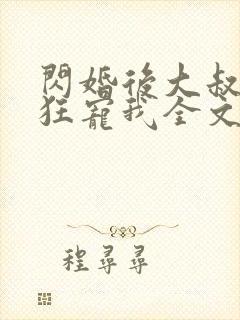 閃婚後大叔
狂寵我全文
程尋尋